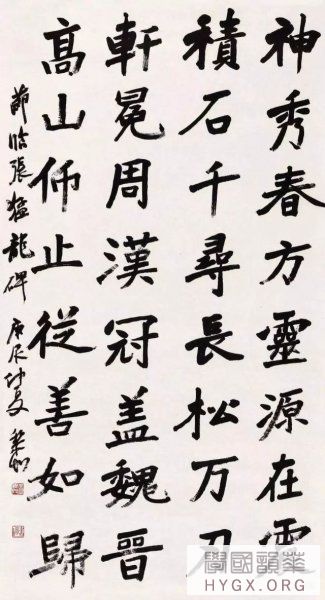 神秀春方靈源在震
積石千尋長松万刃
軒冕周漢冠盖魏晉
高山仰止從善如歸
節臨張猛龍碑 庚辰仲夏
學國韻華
HYGX.ORG